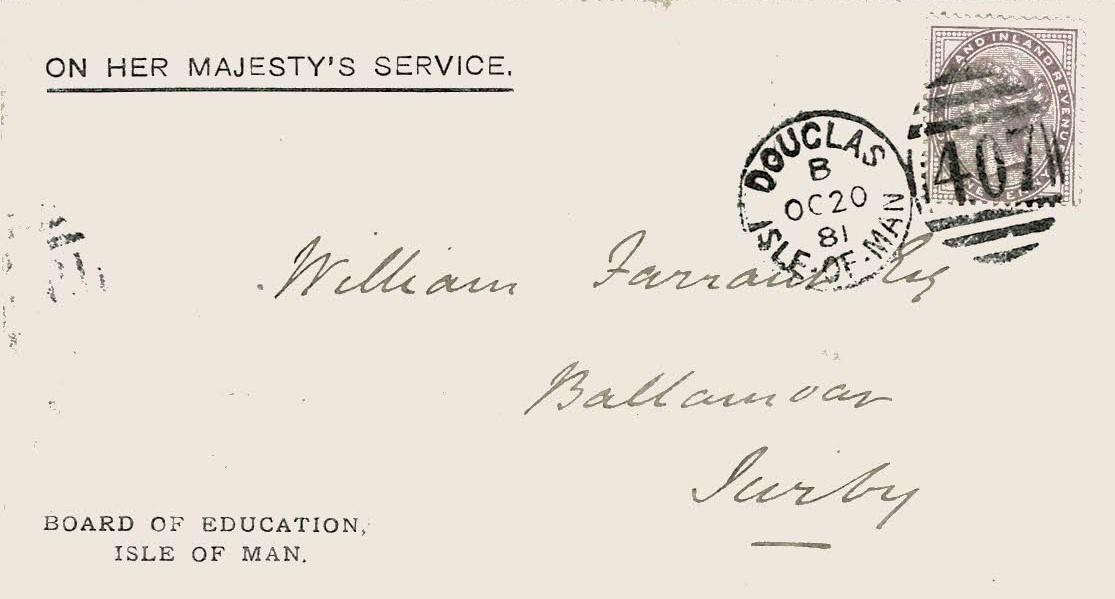 ON HER MAJESTY'S SERVICE.
AND INLAND REVENU
407
DOUGLAS
B
OC 20
81
ISLE-OF-MAN
William Farrant Esq
Ballamoar
Jurby
BOARD OF EDUCATION,
ISLE OF MAN.